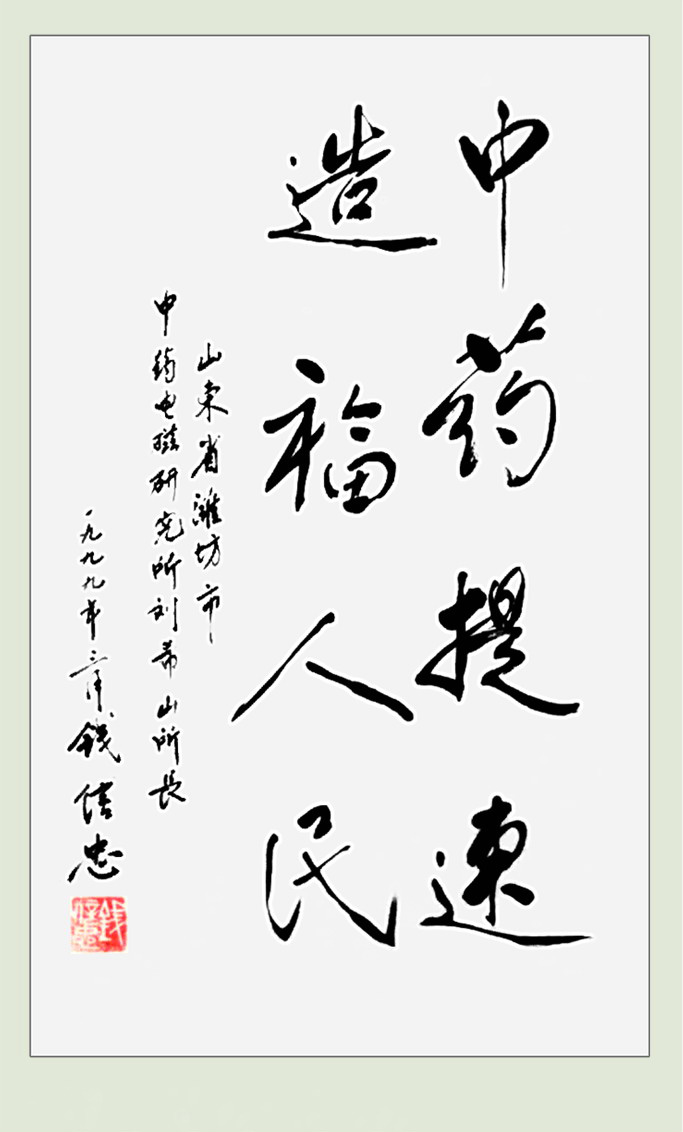 中药提速
造福人民
山東省潍坊市
中药电磁研究所刘希山所長
一九九九年三月
钱信忠
钱信忠